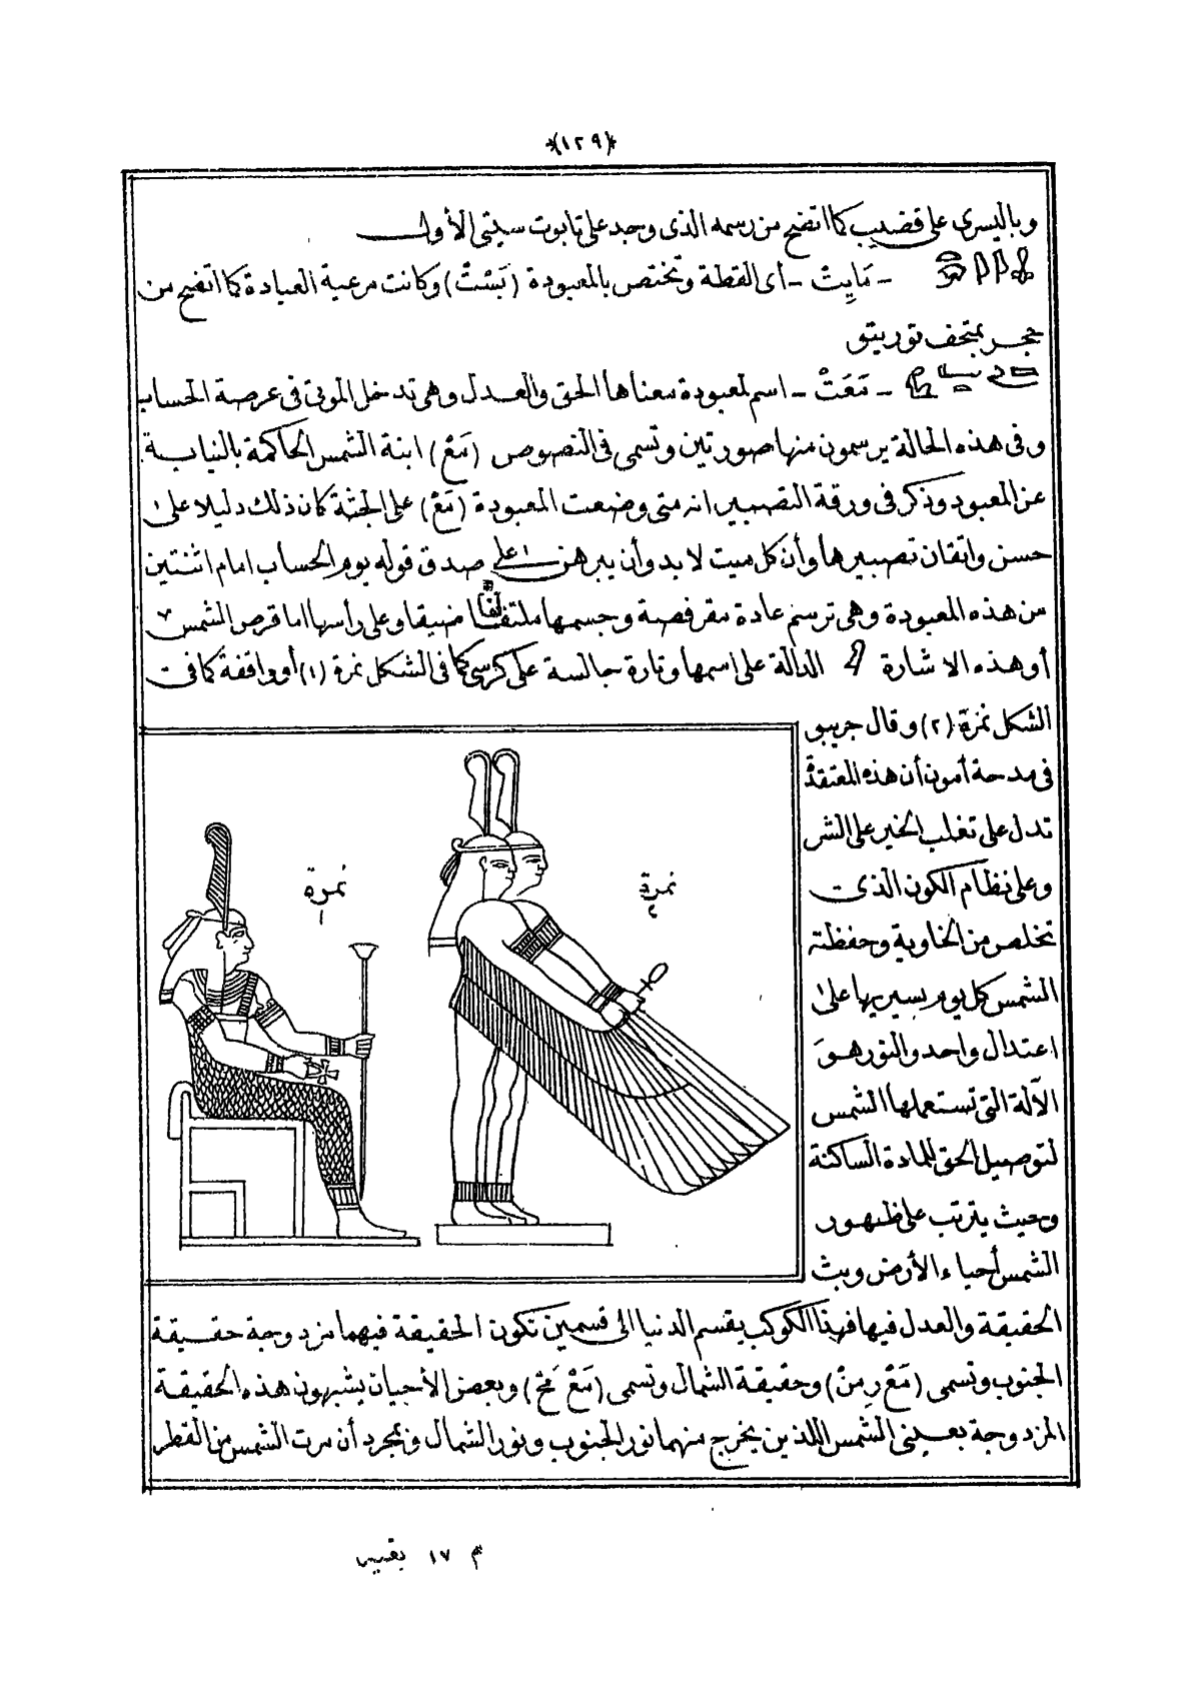 (١٢٩)
وباليسرى على قضيب كما اتضح من رسمه الذى وجد على تابوت سيتى الأول
- مَايِتْ - أى القطة وتختص بالمعبودة (بَسْتْ) وكانت مرعية العبادة كما اتضح من
حجر بمتحف تورينو
- مَعَتْ - اسم لمعبودة معناها الحق والعدل وهى تدخل الموتى فى عرصة الحساب
وفى هذه الحالة يرسمون منها صورتين وتسمى فى النصوص (مَعْ) ابنة الشمس الحاكمة بالنيابة
عن المعبود وذكر فى ورقة التصبير انه متى وضعت المعبودة (مَعْ) على الجثة كان ذلك دليلا على
حسن واتقان تصبيرها وأن كل ميت لابد وأن يبرهن على صدق قوله يوم الحساب امام اثنتين
من هذه المعبودة وهى ترسم عادة مقرفصة وجسمها ملتفا لفّا ضيقا وعلى رأسها اما قرص الشمس
أو هذه الاشارة الدالة على اسمها وتارة جالسة على كرسى كما فى الشكل نمرة (١) أو واقفة كما فى
الشكل نمرة (٢) وقال جريبو
فى مدحة أمون أن هذه المعتقدة
تدل على تغلب الخير على الشر
وعلى نظام الكون الذى
تخلص من الخاوية وحفظته
الشمس كل يوم بسيرها على
اعتدال واحد والنور هو
الآلة التى تستعملها الشمس
لتوصيل الحق للمادة الساكنة
وحيث يترتب على ظهور
الشمس أحياء الأرض وبث
نمرة ١
نمرة ٢
الحقيقة والعدل فيها فهذا الكوكب يقسم الدنيا الى قسمين تكون الحقيقة فيهما مزدوجة حقيقة
الجنوب وتسمى (مَعْ رِمِنْ) وحقيقة الشمال وتسمى (مَعْ مَحْ) وبعض الأحيان يشبهون هذه الحقيقة
المزدوجة بعينى الشمس اللذين يخرج منهما نور الجنوب ونور الشمال وبمجرد أن مرت الشمس من القطر
م ١٧